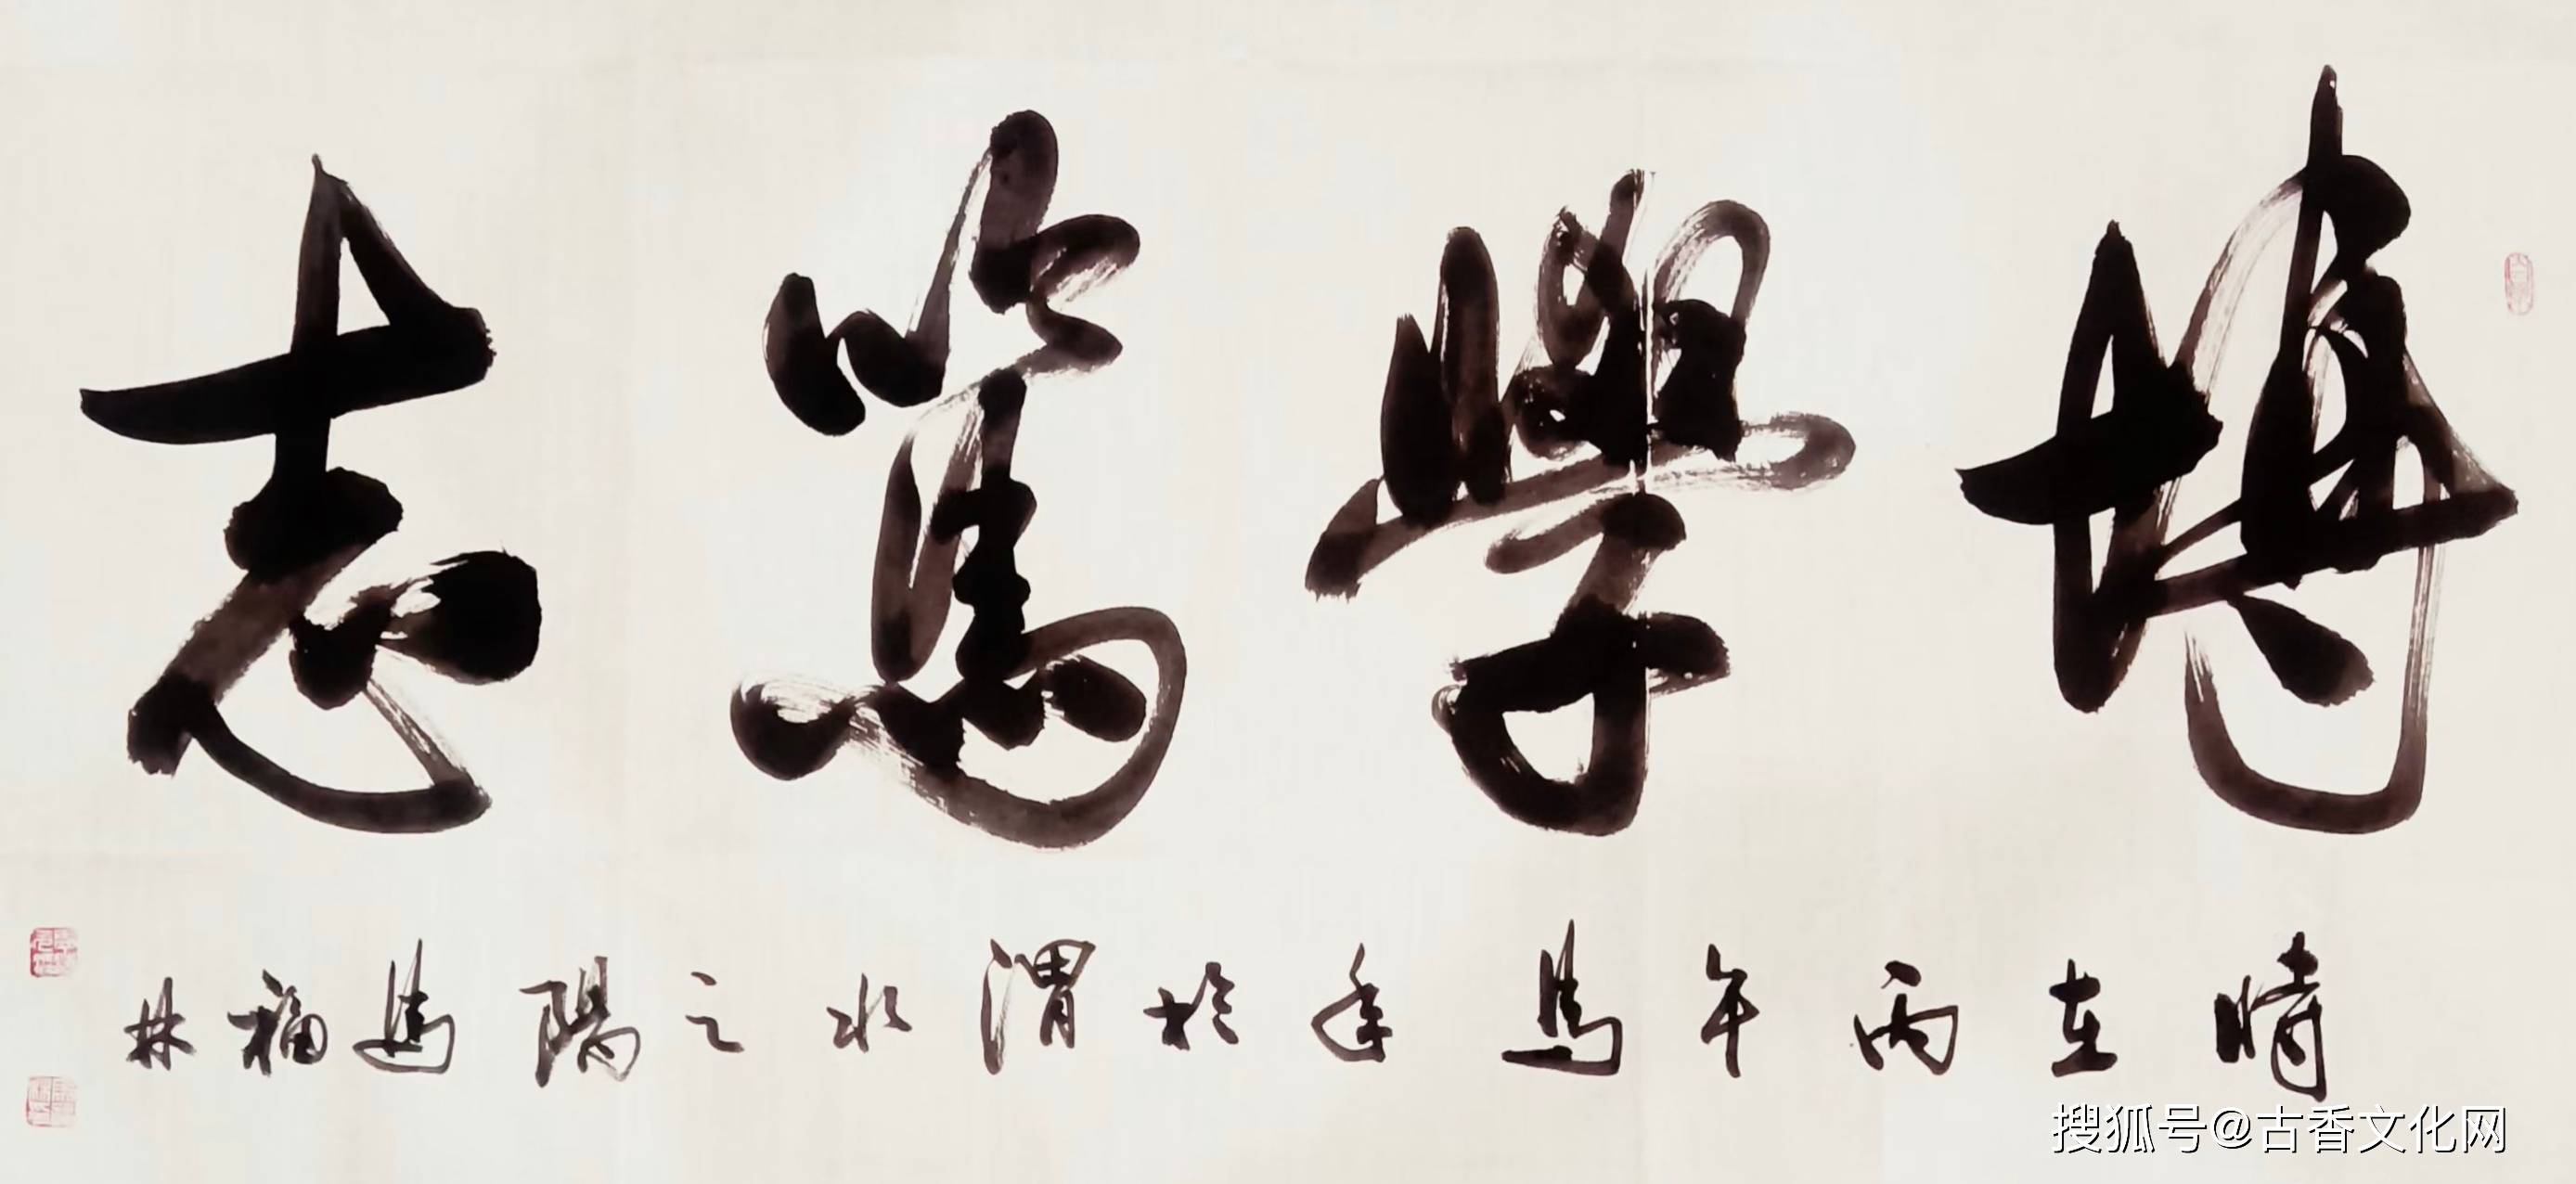 博學篤志
時在丙午馬年於渭水之陽馬福林
搜狐号@古香文化网